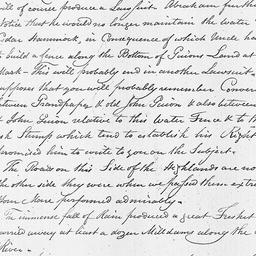 ill of course produce a Lawsuit. Abraham furthe
Notice that he would no longer maintain the Water
Cedar Hammock, in Consequence of which Uncle ha
to build a fence along the Bottom of Prisons Land at
Mark - This will probably end in another Lawsuit.
suppose that you will probably remember Conver
between Grandpaper & old John Prison & also between
& John Prison relative to this Water Fence & to th
Ash Stump which tend to establish his Right
promised him to write to you on the Subject.
The Roads on this Side of the Highlands are no
the other side they were when we passed them extre
your Mare performed admirably.
The immense fall of Rain produced a great Freshet
carried away at least a dozen Milldams along the
River.